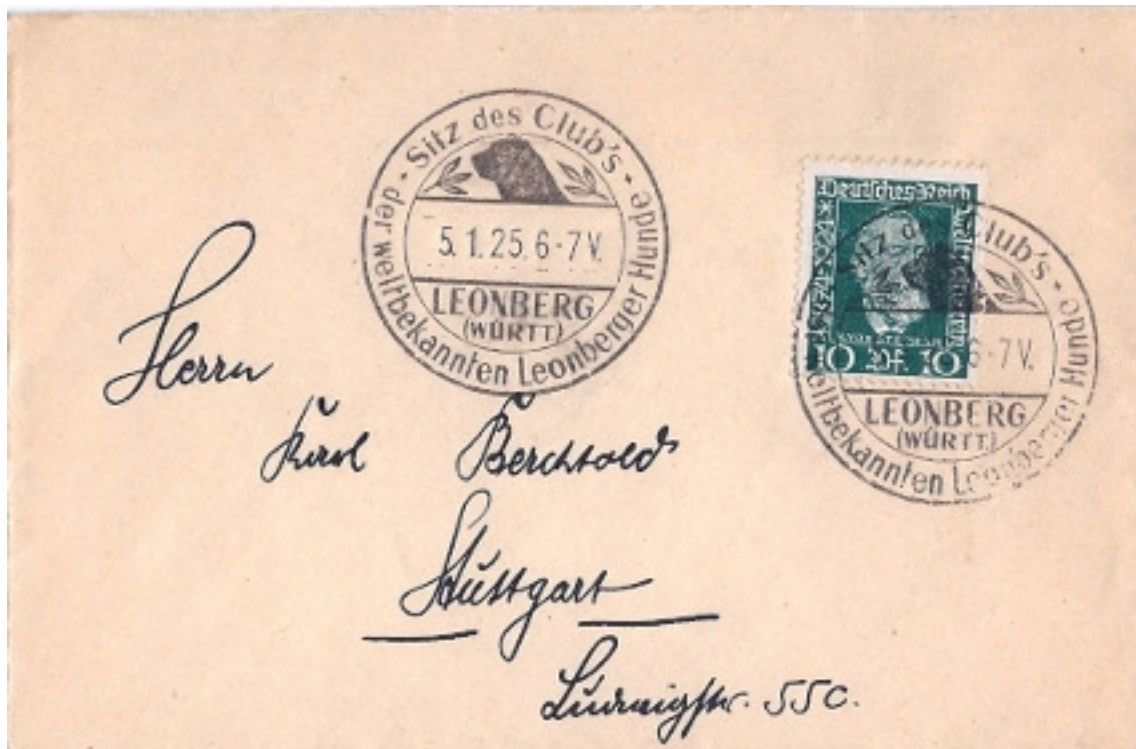 Sitz des Club's
der weltbekannten Leonberger Hunde
5.1.25. 6-7V.
LEONBERG
(WÜRTT)
Deutsches Reich
1874 * 1924
Weltpostverein
10 Pf. 10
Sitz des Club's
weltbekannten Leonberger Hunde
6-7V.
LEONBERG
(WÜRTT.)
Herrn
Karl Berchtold
Stuttgart
Ludwigstr. 55c.